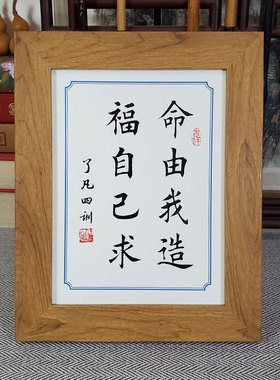 命由我造
福自己求
了凡四训